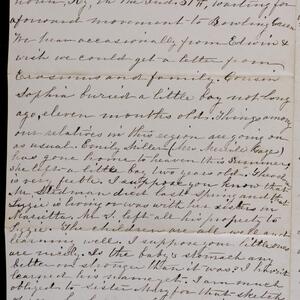 Ky, in the Ind. 37th, waiting for
a forward movement to Bowling Green
We hear occasionally from Edwin &
wish we could get a letter from
Erasmus and family. Cousin
Sophia buried a little boy not long
ago, eleven months old. Things among
our relatives in this region are going on
as usual. Emily Miller (Mrs.
has gone to heaven this Summer
she left a little boy two years old. These
very feeble. I suppose you know that
Mr. died last and that
Lizzie is living or was with his sister in
Marietta. Mr. S. left all his property to
Lizzie. The children are all well and
learning well. I suppose your little ones
are nicely. Is the baby's stomach any
better or stronger than it was? I haven't
learned his name yet. I am much
obliged to sister Mary for that sketch